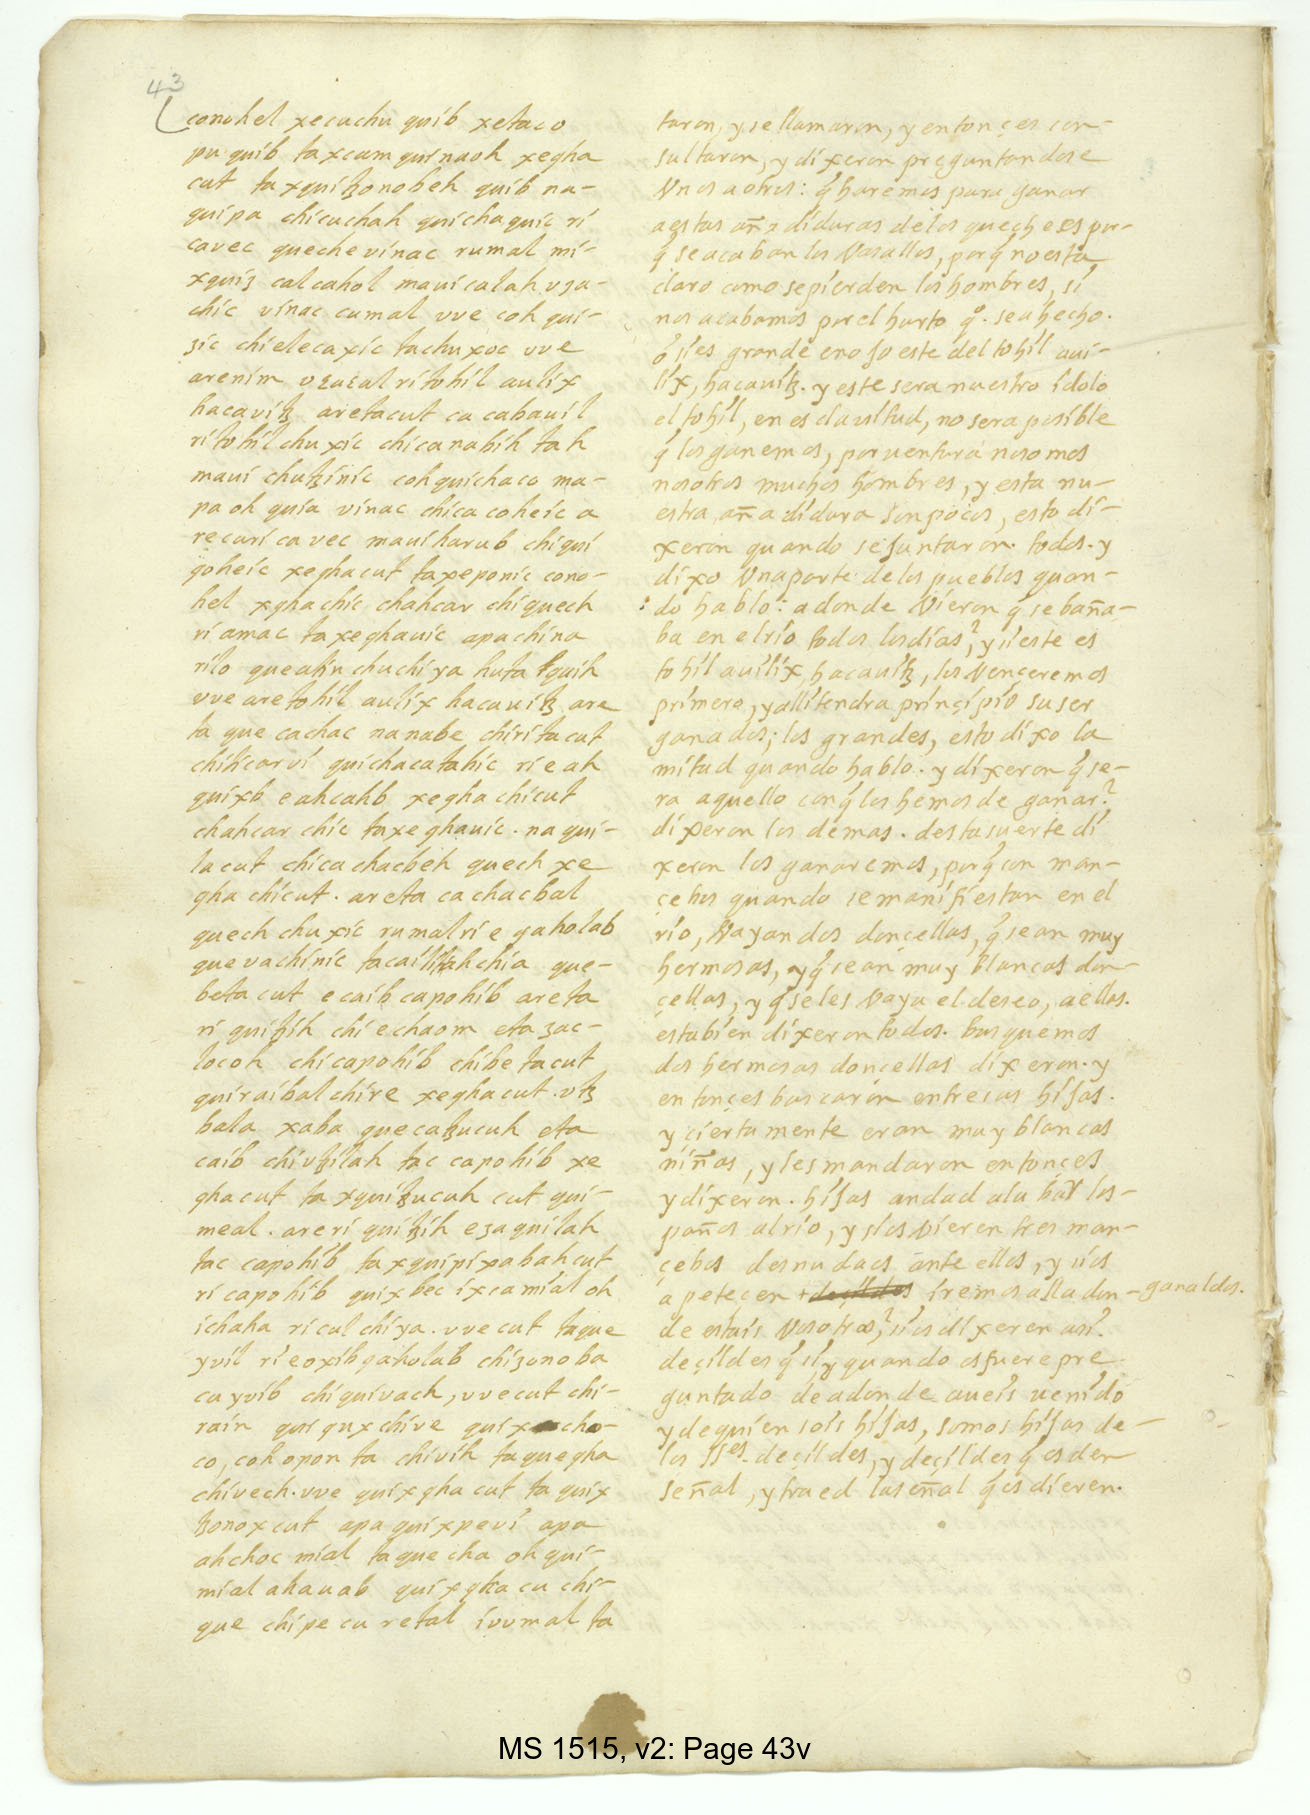 43
conohel xecuchu quib xetaco
pu quib taxcam quinaoh xegha
cut taxquiꜩonobeh quib na-
quipa chicachah quichaquic ri
cavec quechevinac rumal mi-
xquiꜫ calcahol mavicalah vꜫa-
chic vinac cumal vve coh qui-
ꜫic chielecaxic tachuxoc vve
arenim vꜫaꜫal ritohil aulix
hacaviꜩ aretacut ca cabauil
ritohil chuxic chicanabih tah
maui chuꜩinic cohquichaco ma-
pa oh quia vinac chica coheic a
recari cavec mauiharub chiqui
goheic xeghacut taxeponic cono-
hel xghachic chahcar chiquech
ri amac taxeghauic apachina
rilo queatin chuchiya huta quih
vve aretohil aulix hacauiꜩ are
ta que cachac nanabe chiritacut
chihcarvi quichacatahic rieah
quixb eahcahb xegha chicut
chahcar chic taxeghauic. naqui-
lacut chicachacbeh quech xe
gha chicut. areta cachacbal
quech chuxic rumal rie gaholab
quevachinic tacailtahchia que-
beta cut ecaib capohib areta
ri quiꜩih chi echaom eta ꜫac-
locoh chicapohib chibetacut
quiraibal chire xeghacut. vꜩ
bala xaba quecaꜩucuh eta
caib chivꜩilah tac capohib xe
ghacut taxquiꜩucuh cut qui-
meal. areri quiꜩih eꜫaquilah
tac capohib taxquipixabahcut
ri capohib quixbec ixcamial oh
ichaha ricul chiya. vvecut taque
yvil rieoxib gaholab chiꜫonoba
ca yvib chiquivach, vvecut chi-
rain quiquxchive quix cho-
co, cohopon ta chivih taquegha
chivech. vve quixgha cut taquix
ꜩonoxcut apa quixpevi apa
ahchoc mial taquecha oh qui-
mial ahauab quixgha cu chi-
que chipe cu retal ivvmal ta
taron, y se llamaron, y entonçes con-
sultaron, y dixeron preguntandose
Vnos a otros: q̃ haremos para ganar
a estas añadiduras de los quechees por-
q̃ se acaban los Vasallos, porq̃ no esta
claro como se pierden los hombres, si
nos acabamos por el hurto q̃. se a hecho.
ó si es grande enojo este del tohil aui-
lix, hacauiꜩ. y este sera nuestro idolo
el tohil, en esclauitud, no sera posible
q̃ los ganemos, por uentura no somos
nosotros muchos hombres, y esta nu-
estra añadidura son pocos, esto di-
xeron quando se juntaron. todos. y
dixo Vna parte de los pueblos quan-
: do hablo: a donde Vieron q̃ se baña-
ba en el rio todos los dias? y si este es
tohil auilix, hacauiꜩ, los Vençeremos
primero, y alli tendra prinçipio su ser
ganados; los grandes, esto dixo la
mitad quando hablo. y dixeron q̃ se-
ra aquello con q̃ los hemos de ganar?
dixeron los demas. desta suerte di
xeron los ganaremos, porq̃ son man-
çebos quando se manifiestan en el
rio, Vayan dos donçellas, q̃ sean muy
hermosas, y q̃ sean muy blancas don-
çellas, y q̃ se les Vaya el deseo, a ellas.
esta bien dixeron todos. busquemos
dos hermosas donçellas dixeron. y
entonçes buscaron entre sus hijas.
y çiertamente eran muy blancas
niñas, y les mandaron entonçes
y dixeron. hijas andad a labar los-
paños al rio, y si os Vieren tres man-
çebos desnudaos ante ellos, y si os
apeteçen + iremos alla don- ganaldos.
de estais Vosotras? si os dixeren asi.
deçildes q̃ si, y quando os fuere pre
guntado de a donde aueis uenido
y de quien sois hijas, somos hijas de
los sses. deçildes, y deçildes q̃ os den
señal, y traed la señal q̃ os dieren.
MS 1515, v2: Page 43v